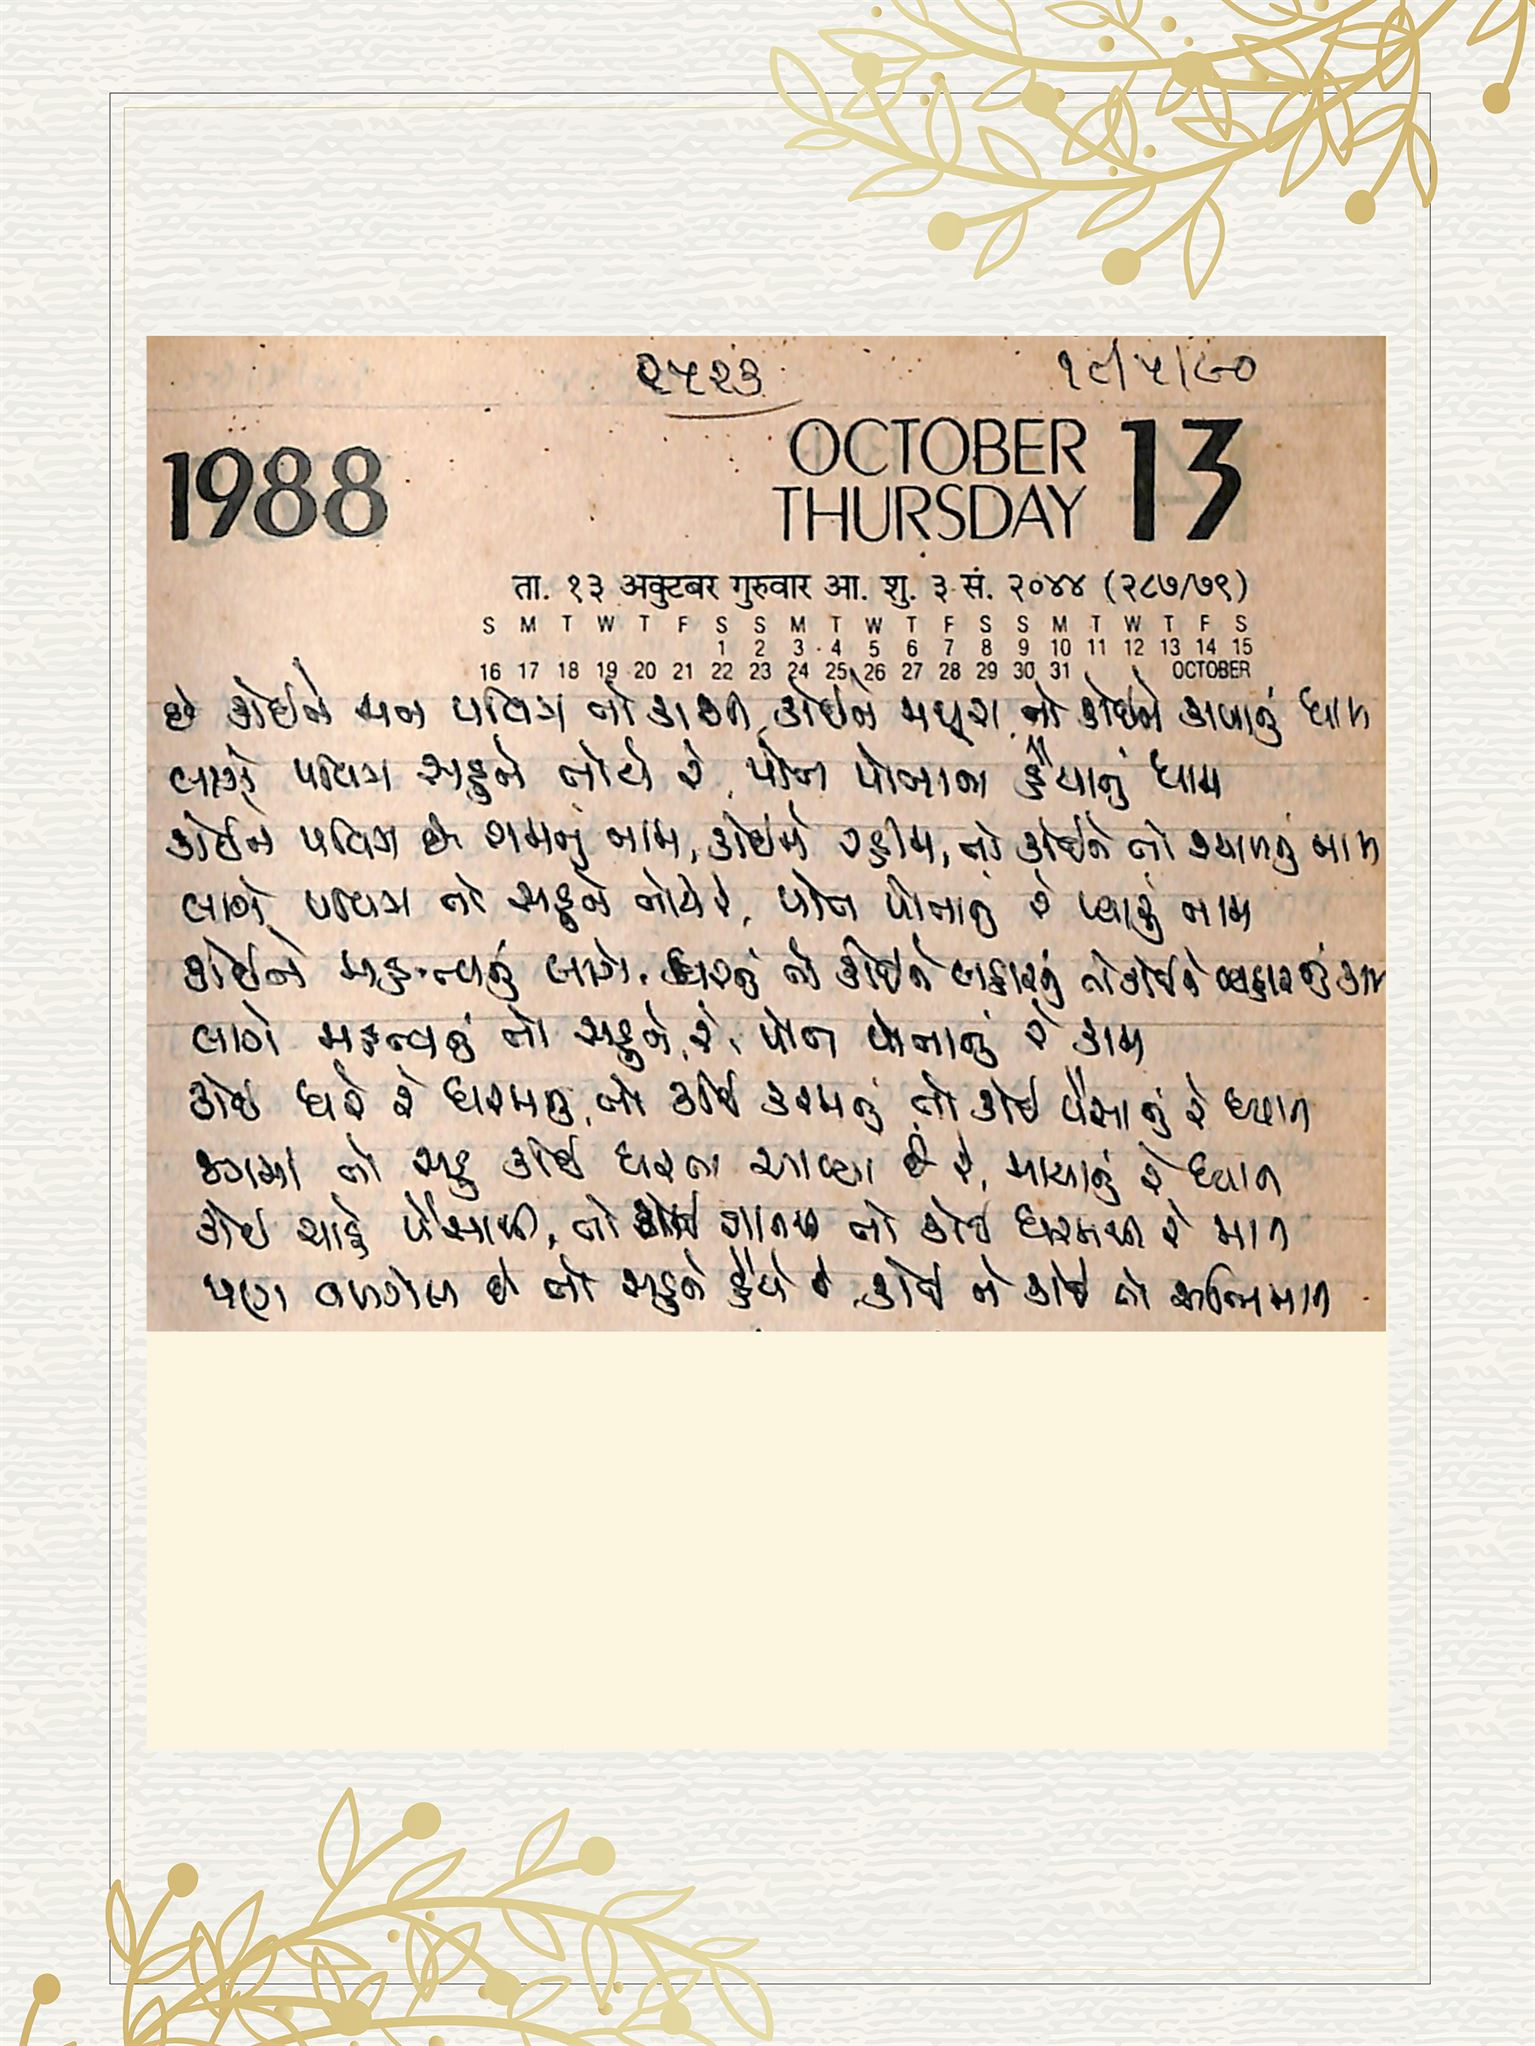 ૨૫૨૩ ૧૯/૫/૯૦
1988 OCTOBER 13
THURSDAY
ता. १३ अक्टुबर गुरुवार आ. शु. ३ सं. २०४४ (२८७/७९)
S M T W T F S S M T W T F S S M T W T F S
1 2 3 4 5 6 7 8 9 10 11 12 13 14 15
16 17 18 19 20 21 22 23 24 25 26 27 28 29 30 31 OCTOBER
છે કોઈને મન પવિત્ર તો કાશી, કોઈને મથુરા, તો કોઈને કાબાનું ધામ
લાગે પવિત્ર સહુને તોયે રે, પોત પોતાના હૈયાનું ધામ
કોઈને પવિત્ર છે રામનું નામ, કોઈને રહીમ, તો કોઈને તો શ્યામનું નામ
લાગે પવિત્ર તો સહુને તોયે રે, પોત પોતાનું રે પ્યારું નામ
કોઈને મહત્ત્વનું લાગે, ઘરનું તો કોઈને બહારનું તો કોઈને વ્યવહારનું કામ
લાગે મહત્ત્વનું તો સહુને રે, પોત પોતાનું રે કામ
કોઈ ધરે રે ધરમનું, તો કોઈ કરમનું તો કોઈ પૈસાનું રે ધ્યાન
જગમાં તો સહુ કોઈ ધરતા આવ્યા છે રે, માયાનું રે ધ્યાન
કોઈ ચાહે પૈસાથી, તો કોઈ જ્ઞાનથી તો કોઈ ધરમથી રે માન
પણ વળગેલ છે તો સહુને હૈયે રે, કોઈ ને કોઈ તો અભિમાન